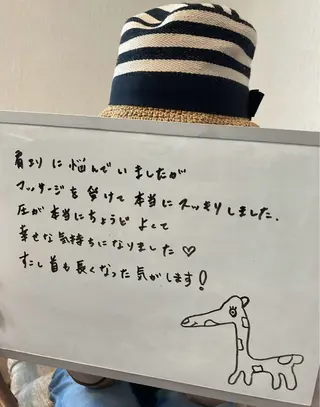 肩こりに悩んでいましたが
マッサージを受けて本当にスッキリしました.
圧が本当にちょうどよくて
幸せな気持ちになりました♡
すこし首も長くなった気がします!